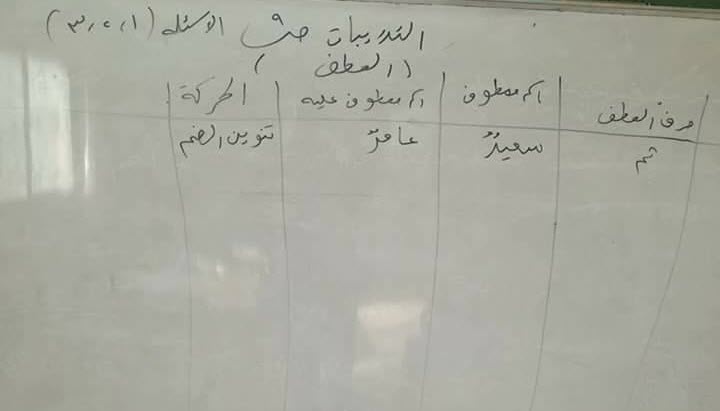 التدريبات ص٩ الاسئلة (١،٢،٣)
(العطف)
حرف العطف اسم معطوف اسم معطوف عليه الحركة
ثم سعيدٌ عامرٌ تنوين الضم